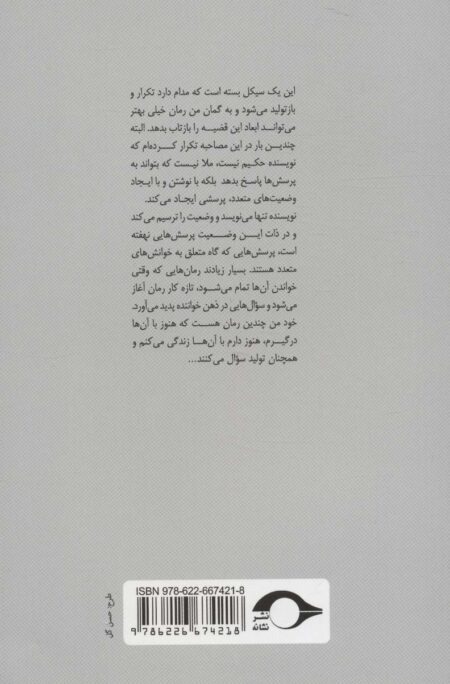 این یک سیکل بسته است که مدام دارد تکرار و
بازتولید می‌شود و به گمان من رمان خیلی بهتر
می‌توانـد ابعاد این قضیـه را بازتاب بدهد. البته
چندیـن بار در این مصاحبه تکرار کـرده‌ام که
نویسنده حکیـم نیست، ملا نیست که بتواند به
پرسش‌ها پاسخ بدهد بلکه با نوشتن و با ایجاد
وضعیت‌های متعدد، پرسشی ایجاد می‌کند.
نویسنده تنها می‌نویسد و وضعیت را ترسیم می‌کند
و در ذات ایـن وضـعیت پرسش‌هایی نهفته
است، پرسش‌هایی که گاه متعلق به خوانش‌های
متعدد هستند. بسیار زیادند رمان‌هایی که وقتی
خواندن آن‌ها تمام می‌شـود، تازه کار رمان آغاز
می‌شود و سؤال‌هایی در ذهن خواننده پدید می‌آورد.
خود من چندین رمان هست که هنوز با آن‌ها
درگیـرم، هنوز دارم با آن‌هـا زندگی می‌کنم و
همچنان تولید سؤال می‌کنند...
طرح: حسن گل
ISBN 978-622-667421-8
9 786226 674218
نشر
نشانه